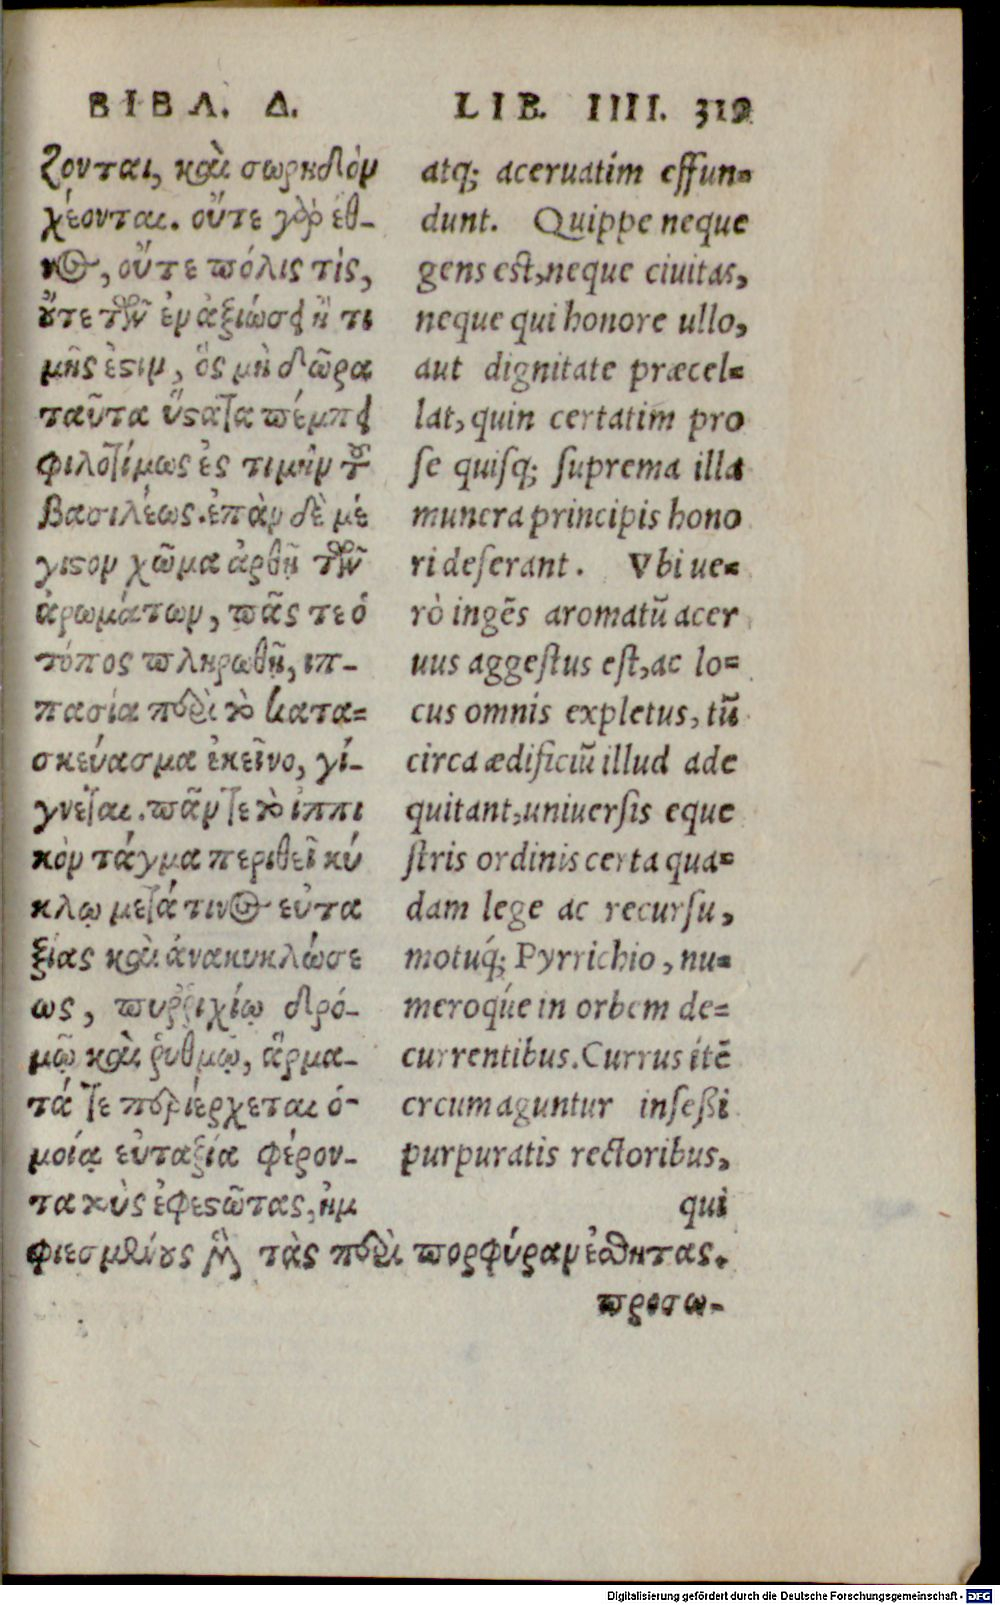 ΒΙΒΛ. Δ.
ζονται, καὶ σωρηδὸν
χέονται. οὔτε γὰρ ἔθ-
νος, οὔτε πόλις τὶς,
οὔτε τῶν ἐν ἀξιώσει ἢ τι
μῆς ἐστιν, ὃς μὴ δῶρα
ταῦτα ὕστατα πέμπει
φιλοτίμως ἐς τιμὴν τοῦ
βασιλέως. ἐπὰν δὲ μέ
γιστον χῶμα ἀρθῇ τῶν
ἀρωμάτων, πᾶς τε ὁ
τόπος πληρωθῇ, ιπ-
πασία περὶ τὸ κατα=
σκεύασμα ἐκεῖνο, γί-
γνεται. πᾶν τε τὸ ἱππι
κὸν τάγμα περιθεῖ κύ
κλῳ μετά τινος εὐτα
ξίας καὶ ἀνακυκλώσε
ως, πυῤῥιχίῳ δρό-
μῳ καὶ ῥυθμῷ, ἅρμα-
τά τε περιέρχεται ὁ-
μοίᾳ εὐταξία φέρον-
τα τοὺς ἐφεστῶτας, ἠμ
φιεσμένους μὲν τὰς περὶ πορφύραν ἐσθητας.
προσω-
LIB. IIII. 319
atq; aceruatim effun=
dunt. Quippe neque
gens est, neque ciuitas,
neque qui honore ullo,
aut dignitate præcel=
lat, quin certatim pro
se quisq; suprema illa
munera principis hono
ri deferant. Vbi ue=
rò ingẽs aromatũ acer
uus aggestus est, ac lo=
cus omnis expletus, tũ
circa ædificiũ illud ade
quitant, uniuersis eque
stris ordinis certa qua=
dam lege ac recursu,
motuq́; Pyrrichio, nu=
meroq́ue in orbem de=
currentibus. Currus itẽ
crcumaguntur inseßi
purpuratis rectoribus,
qui
Digitalisierung gefördert durch die Deutsche Forschungsgemeinschaft - DFG